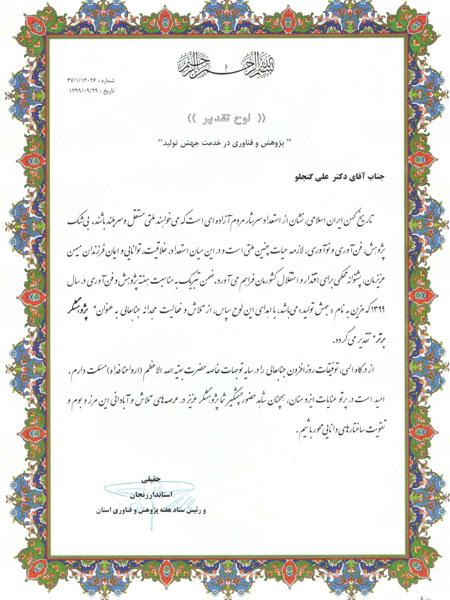 بسم الله الرحمن الرحیم
شماره : ۴۷/۱/۱۳۰۲۶
تاریخ : ۱۳۹۹/۰۹/۲۹
(( لوح تقدیر ))
" پژوهش و فناوری در خدمت جهش تولید"
جناب آقای دکتر علی گنجلو
تاریخ کهن ایران اسلامی، نشان از استعداد سرشار مردم آزاده ای است که می خواهند ملتی مستقل و سربلند باشند. بی شک
پژوهش، فن آوری و نوآوری، لازمه حیات چنین ملتی است و در این میان استعداد، خلاقیت، توانایی و ایمان فرزندان میهن
عزیزمان، پشتوانه محکمی برای اقتدار و استقلال کشورمان فراهم می آورد. ضمن تبریک به مناسبت هفته پژوهش و فن آوری در سال
۱۳۹۹ که مزین به نام « جهش تولید» می باشد، با اهدای این لوح سپاس، از تلاش و فعالیت مجدانه جنابعالی به عنوان " پژوهشگر
برتر" تقدیر می گردد.
از درگاه الهی، توفیقات روزافزون جنابعالی را در سایه توجهات خاصه حضرت بقیه الله الاعظم (ارواحنا فداه) مسئلت دارم.
امید است در پرتو عنایات ایزد منان، همچنان شاهد حضور چشمگیر شما پژوهشگر عزیز در عرصه های تلاش و آبادانی این مرز و بوم و
تقویت ساختارهای دانایی محور باشیم.
حقیقی
استاندار زنجان
و رئیس ستاد هفته پژوهش و فناوری استان